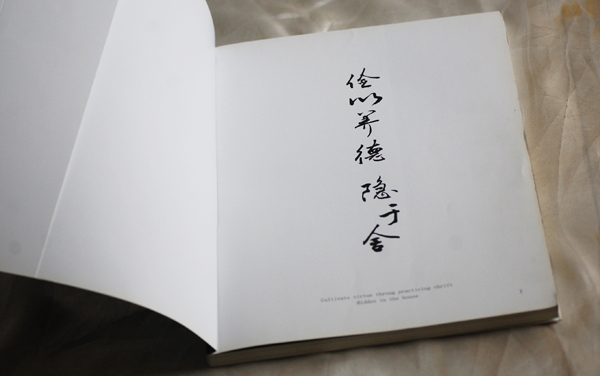 俭以养德
隐于舍
Cultivate virtue throug practicing thrift
Hidden in the house